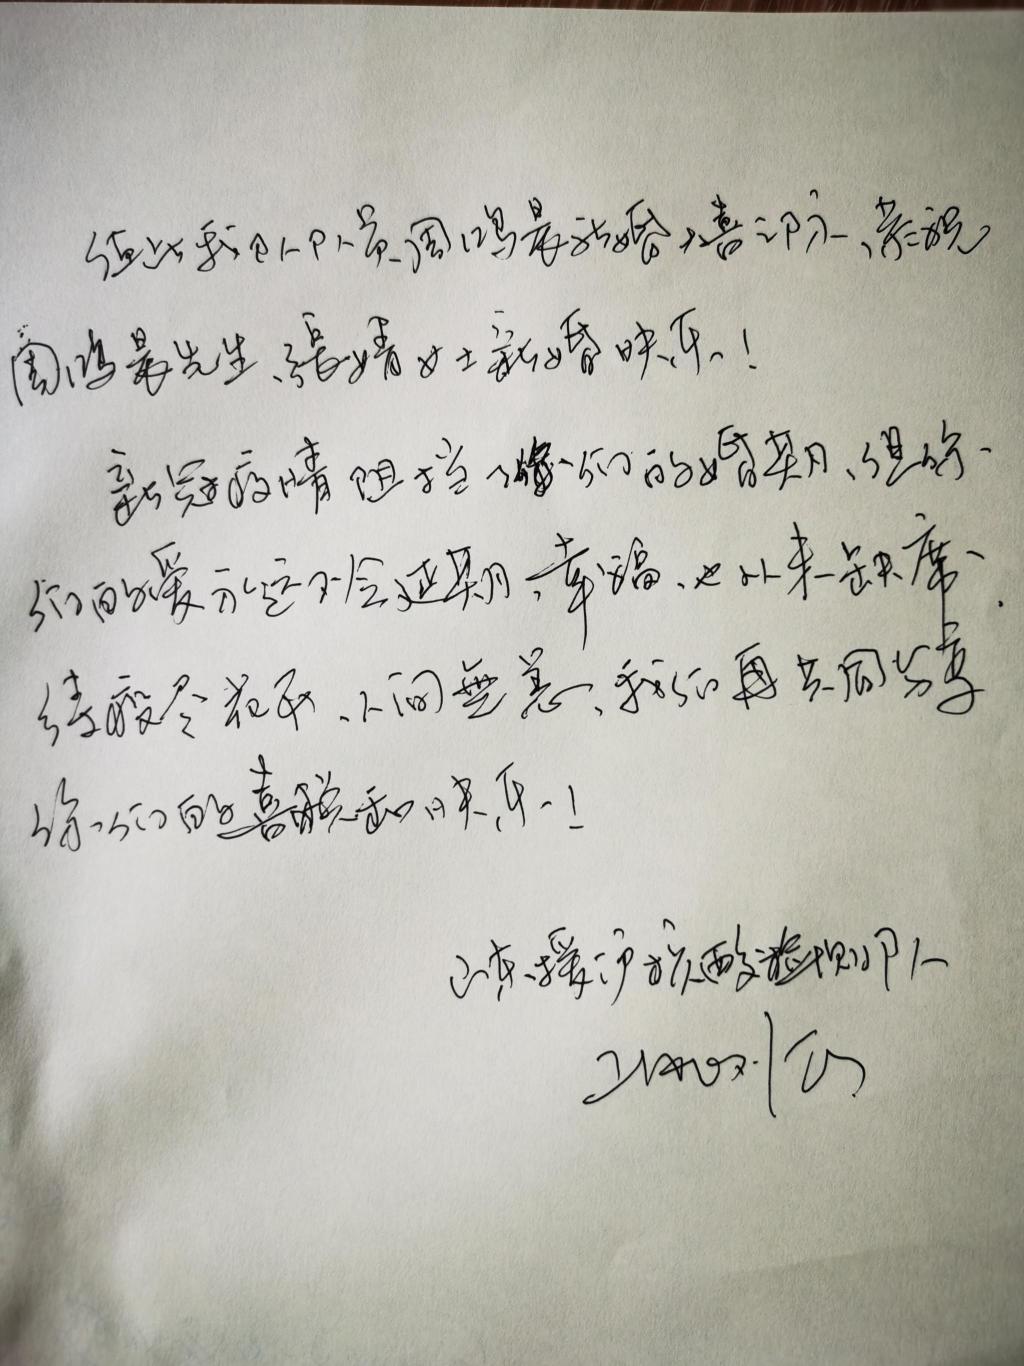 值此我队队员周鸿晨新婚大喜之际，恭祝
周鸿晨先生、張婧女士新婚快乐！
新冠疫情阻挡了你们的婚期，但你
们的爱永远不会延期，幸福，也从未缺席，
待疫尽花开，人间無恙，我们再共同分享
你们的喜悦和快乐！
山东援沪核酸检测队